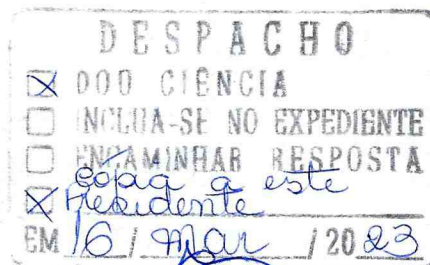 DESPACHO
DOU CIÊNCIA
INCLUA-SE NO EXPEDIENTE
ENCAMINHAR RESPOSTA
Cópia a este
Presidente
EM 16 / Mar / 2023